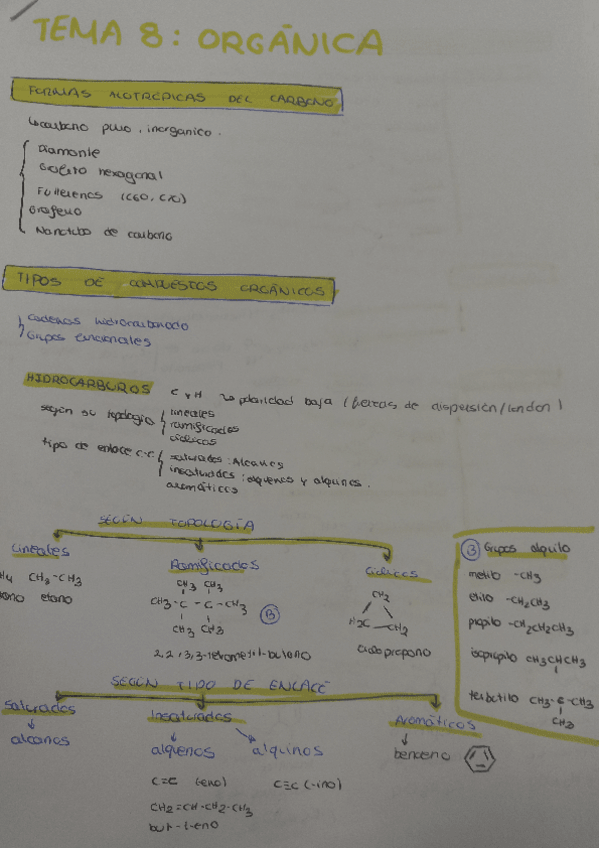 TEMA 8: ORGÁNICA
FORMAS ALOTRÓPICAS DEL CARBONO
↳carbono puro, inorgánico.
Diamante
Grafito hexagonal
Fullerenos (C60, C70)
Grafeno
Nanotubo de carbono
TIPOS DE COMPUESTOS ORGÁNICOS
Cadenas hidrocarbonado
Grupos funcionales
HIDROCARBUROS C y H ↳ polaridad baja (fuerzas de dispersión/london)
según su topología lineales
ramificados
cíclicos
tipo de enlace C-C saturados: Alcanos
insaturados: alquenos y alquinos.
aromáticos
SEGÚN TOPOLOGÍA
Lineales
CH3-CH3
etano
Ramificados
CH3 CH3
CH3-C - C-CH3
CH3 CH3
B
2,2,3,3-tetrametil-butano
Cíclicos
CH2
H2C - CH2
Ciclopropano
B Grupos alquilo
metilo -CH3
etilo -CH2CH3
propilo -CH2CH2CH3
isopropilo CH3CHCH3
terbutilo CH3-C-CH3
CH3
SEGÚN TIPO DE ENLACE
Saturados
↓
alcanos
Insaturados
alquenos
alquinos
C=C (-eno)
C≡C (-ino)
CH2=CH-CH2-CH3
but-1-eno
Aromáticos
↓
benceno